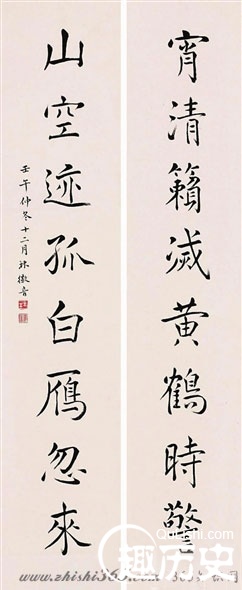 宵清籟滅黄鶴時警
山空迹孤白鴈忽來
壬午仲冬十二月林徽音
趣历史